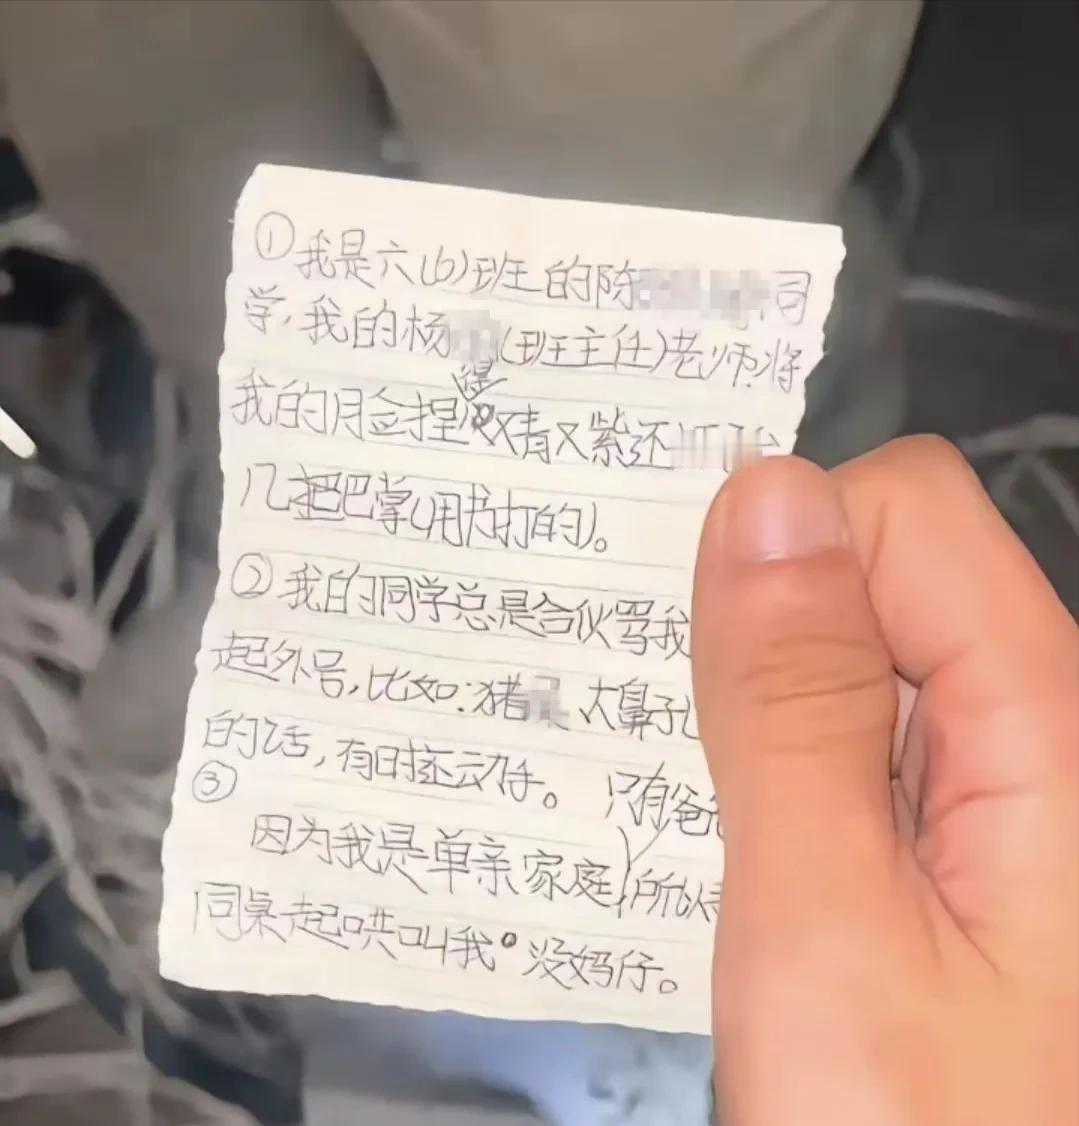 ①我是六(6)班的陈 同
学,我的杨 (班主任)老师.将
我的脸捏得又青又紫还
几把巴掌(用书打的)。
②我的同学总是合伙骂我
起外号,比如:猪 大鼻子
的话,有时还动手。 只有爸爸
③
因为我是单亲家庭 所以
同桌起哄叫我 没妈仔。